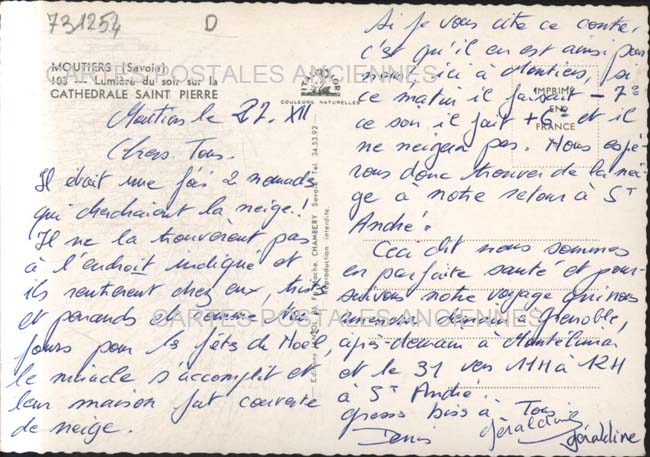 731254 D
MOUTIERS (Savoie)
103 - Lumière du soir sur la
CATHEDRALE SAINT PIERRE
COULEURS NATURELLES
IMPRIMÉ
EN
FRANCE
CARTES POSTALES ANCIENNES
CARTES POSTALES ANCIENNES
Reproduction interdite.
CHAMBERY Savoie Tél. 34.53.92
Moutiers le 27. XII
Chers Tous.
Il était une fois 2 nomades
qui cherchaient la neige!
Il ne la trouvèrent pas
à l'endroit indiqué et
ils rentrèrent chez eux,
et penauds et comme tou
jours pour les fêtes de Noël,
le miracle s'accomplit et
leur maison fut couverte
de neige.
Si je vous cite ce conte,
c'est qu'il en est ainsi pour
nous, ici à Moutiers,
ce matin il faisait -7°
ce soir il fait +6° et il
ne neigera pas. Nous espé-
rons donc trouver de la nei
ge à notre retour à St
André!
Ceci dit nous sommes
en parfaite santé et pour-
suivons notre voyage qui nous
demain à Grenoble,
après-demain à Montélimar
et le 31 vers 11H à 12H
à St André.
gros bises à Tous
Denis Géraldine
Géraldine